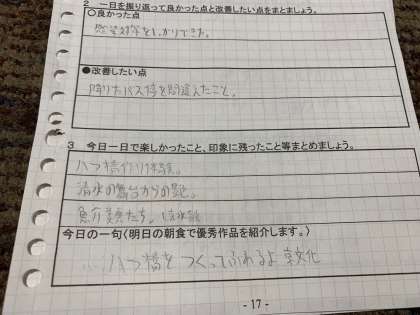 2 一日を振り返って良かった点と改善したい点をまとめましょう。
○良かった点
感染対策をしっかりできた。
●改善したい点
降りたバス停を間違えたこと。
3 今日一日で楽しかったこと、印象に残ったこと等まとめましょう。
八つ橋作り体験。
清水の舞台からの景色。
今日の一句(明日の朝食で優秀作品を紹介します。)
八つ橋を つくってふれるよ 京文化
- 17 -